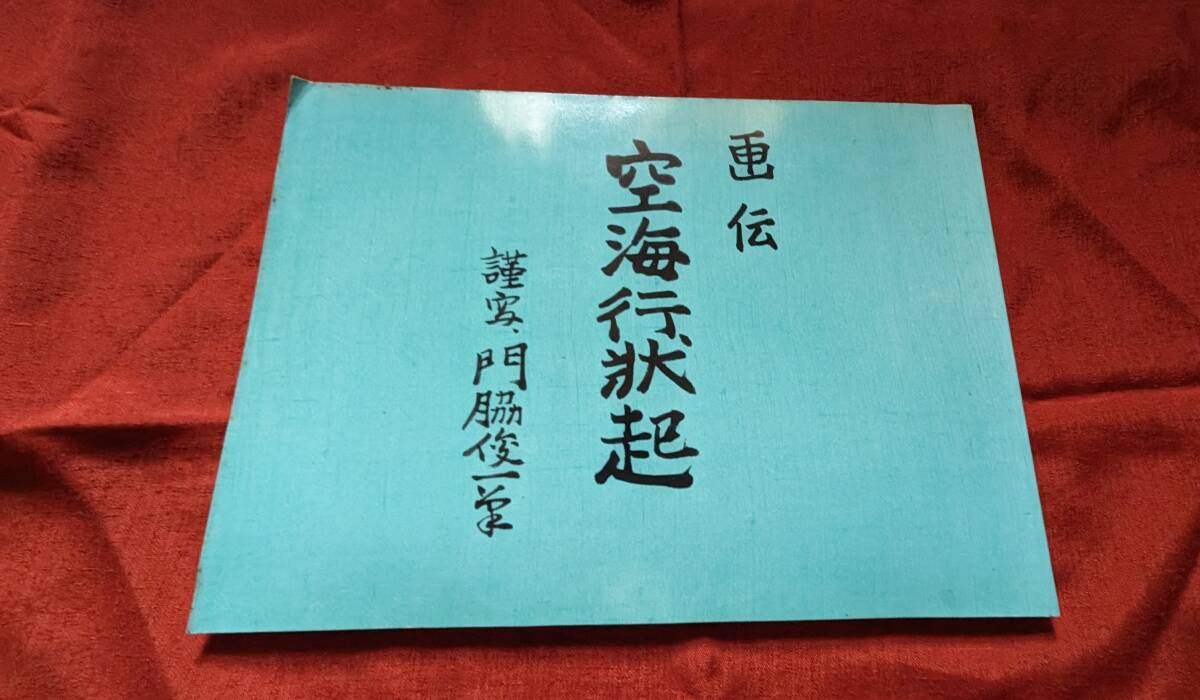 画伝
空海行状起
謹写、門脇俊一筆